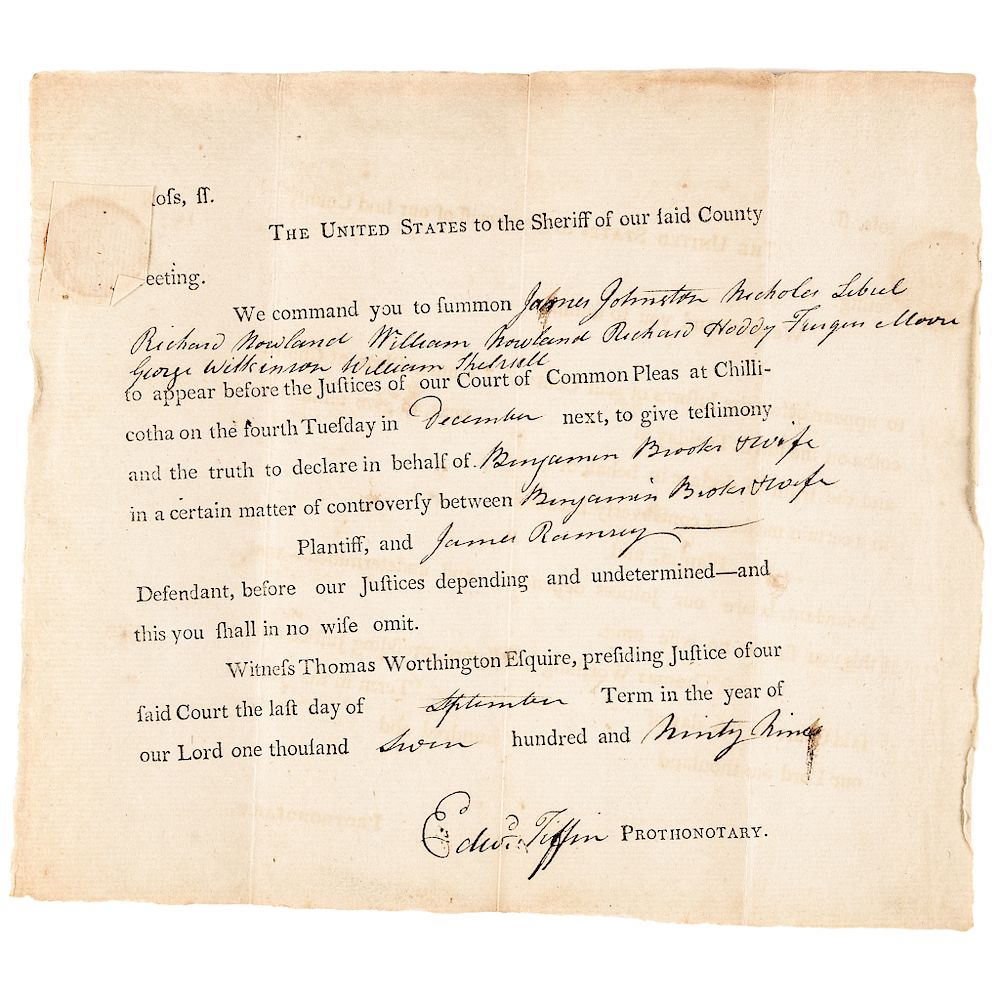 oſs, ſſ.
THE UNITED STATES to the Sheriff of our ſaid County
eeting.
We command you to ſummon James Johnston Nicholas
Richard Rowland William Rowland Richard Hoddy Furgus Moore
George Wilkinson William
to appear before the Juſtices of our Court of Common Pleas at Chilli-
cotha on the fourth Tueſday in December next, to give teſtimony
and the truth to declare in behalf of. Benjamin Brooks & wife
in a certain matter of controverſy between Benjamin Brooks & wife
Plantiff, and James Ramsey
Defendant, before our Juſtices depending and undetermined—and
this you ſhall in no wiſe omit.
Witneſs Thomas Worthington Eſquire, preſiding Juſtice of our
ſaid Court the laſt day of September Term in the year of
our Lord one thouſand Seven hundred and Ninty Nine
Edwd. Tiffin PROTHONOTARY.